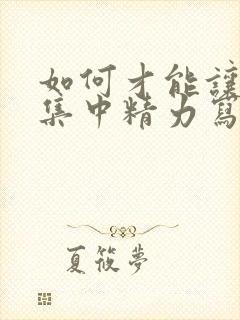 如何才能讓
集中精力寫
夏筱夢